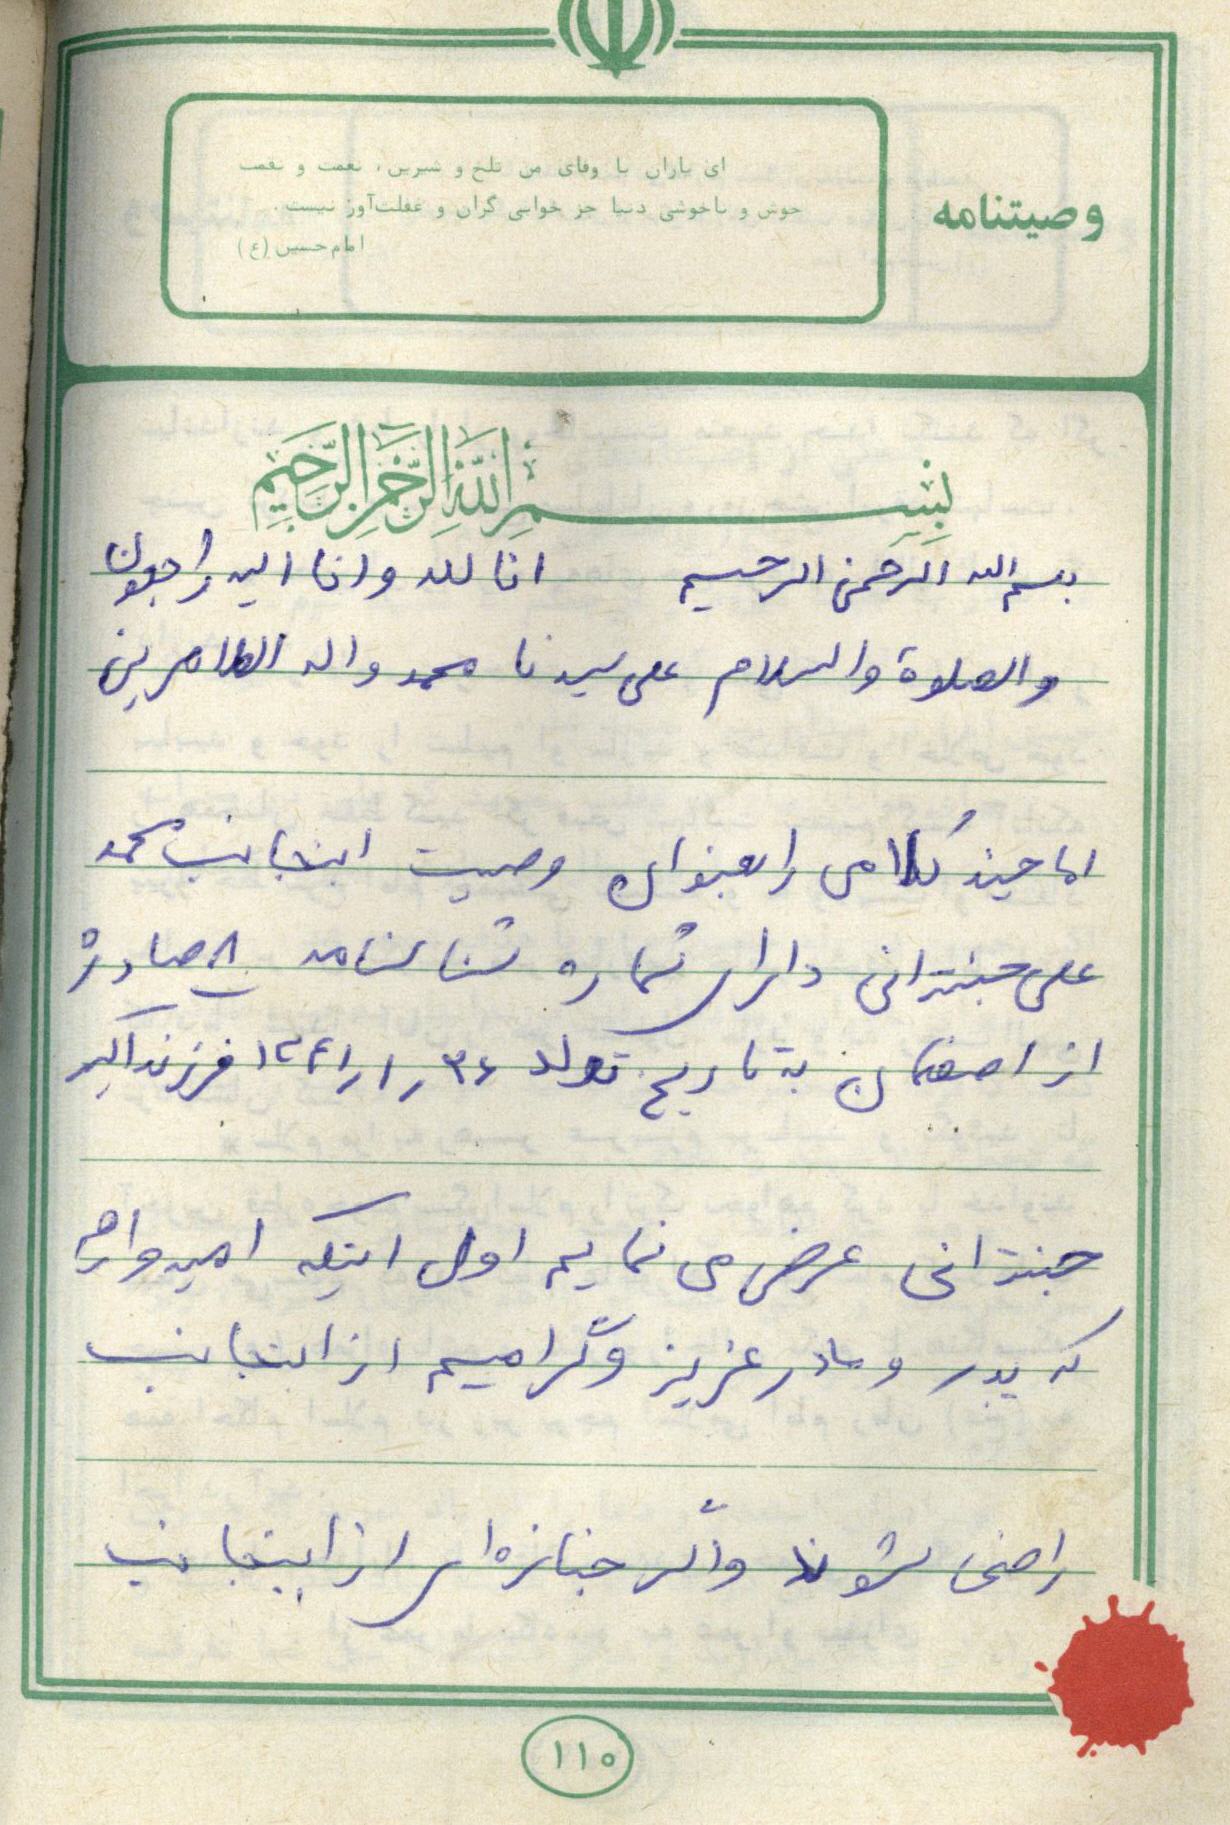 وصیتنامه
ای یاران با وفای من تلخ و شیرین، نعمت و نقمت
خوش و ناخوشی دنیا جز خوابی گران و غفلت‌آور نیست.
امام حسین (ع)
بِسْمِ اللَّهِ الرَّحْمَنِ الرَّحِيمِ
بسم الله الرحمن الرحیم انا لله وانا الیه راجعون
والصلوة والسلام علی سیدنا محمد واله الطاهرین
اما چند کلامی را بعنوان وصیت اینجانب محمد
علی جنتدانی دارای شماره شناسنامه ۸ صادره
از اصفهان به تاریخ تولد ۱۳۴۱٫۱٫ فرزند اکبر
جنتدانی عرض می نمایم اول اینکه امیدوارم
که پدر و مادر عزیز وگرامیم از اینجانب
راضی شوند واگر جنازه ای از اینجانب
۱۱۰